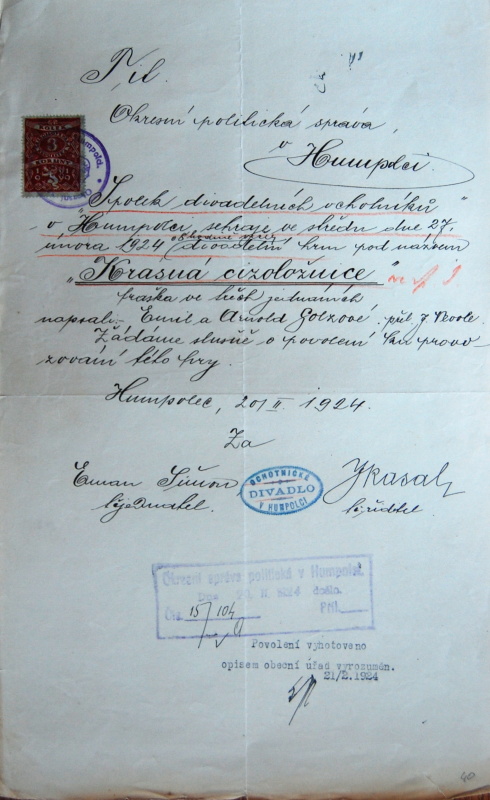 Okresní politická správa
v Humpolci.
KOLEK
3
KORUNY
"Spolek divadelních ochotníků"
v Humpolci, sehraje ve středu dne 27.
února 1924 divadelní hru pod názvem
"Krásná cizoložnice"
fraška ve třech jednáních
napsali Emil a Arnold Golzové. přel J.
Žádáme slušně o povolení ku provo
zování této hry.
Humpolec, 20/II. 1924.
Za
Eman
jednatel.
OCHOTNICKÉ
DIVADLO
V HUMPOLCI
ředitel
Okresní správa politická v Humpolci.
Dne II 1924 došlo.
Čís. 15/104 Příl.
Povolení vyhotoveno
opisem obecní úřad vyrozuměn.
21/2.1924
40